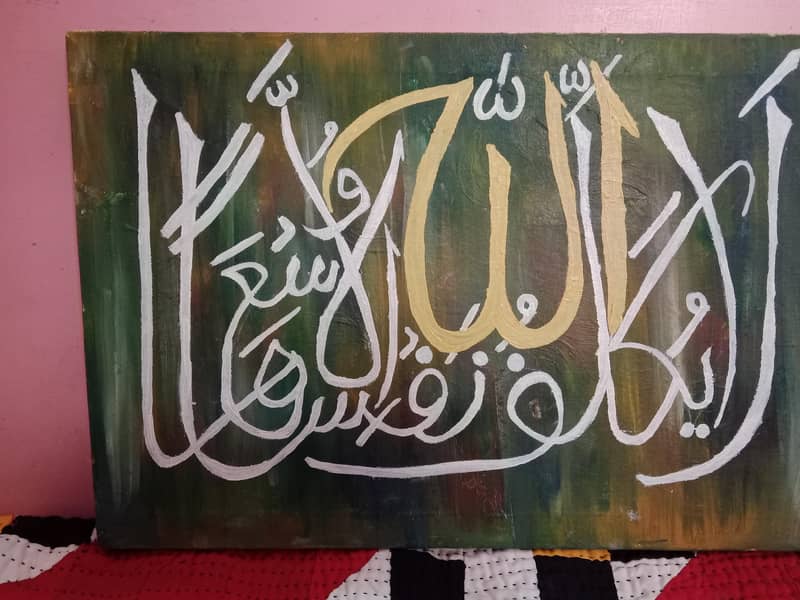 لا يُكلّفُ اللّٰه نَفْسًا إلّا وُسْعَها